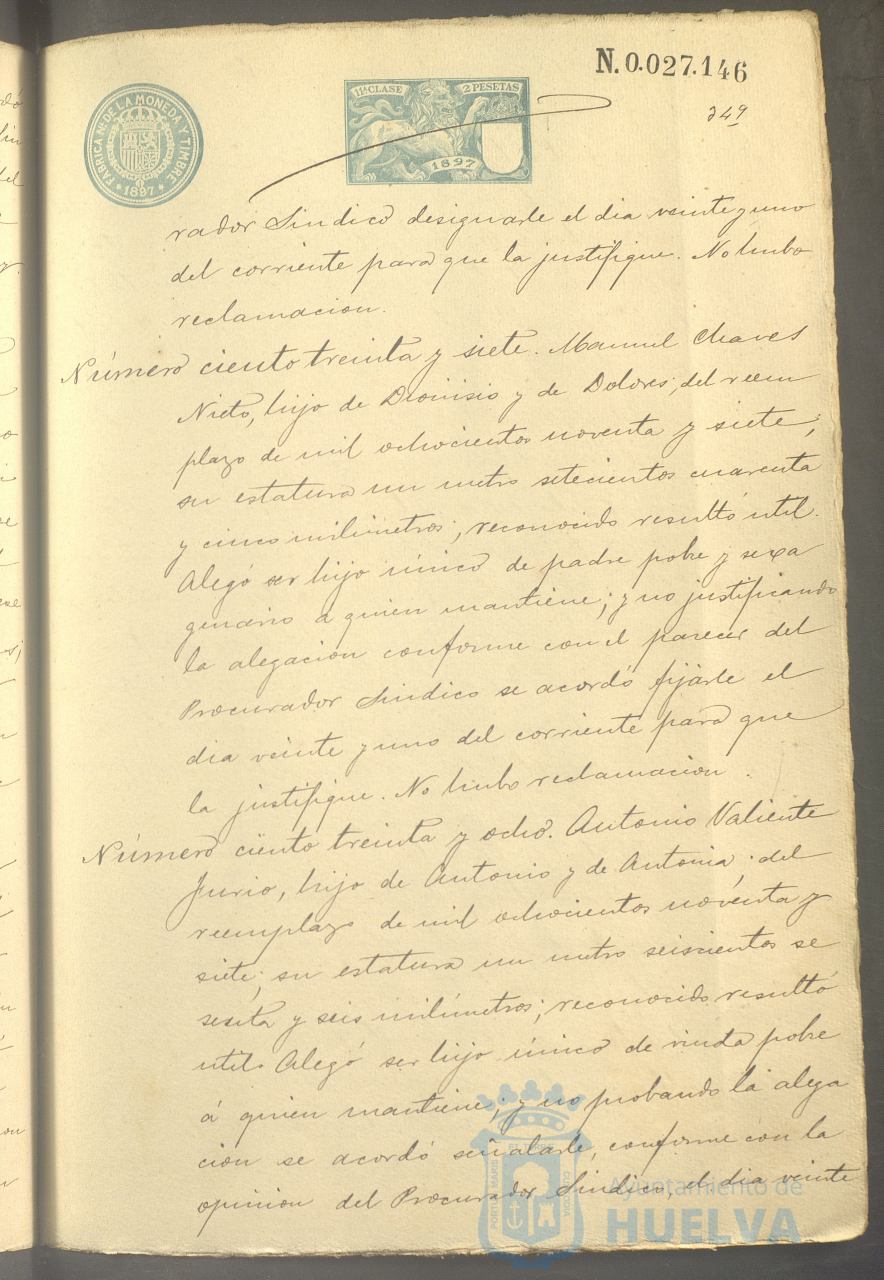 N.0.027.146
249
FABRICA NL. DE LA MONEDA Y TIMBRE
1897
11ª CLASE
2 PESETAS
1897
rador Sindico designarle el dia veinte y uno
del corriente para que la justifique. No hubo
reclamacion.
Número ciento treinta y siete. Manuel Chaves
Nieto, hijo de Dionisio y de Dolores; del reem
plazo de mil ochocientos noventa y siete;
su estatura un metro setecientos cuarenta
y cinco milimetros; reconocido resultó util.
Alegó ser hijo único de padre pobre y sexa
genario a quien mantiene; y no justificando
la alegacion conforme con el parecer del
Procurador Sindico se acordó fijarle el
dia veinte y uno del corriente para que
la justifique. No hubo reclamacion.
Número ciento treinta y ocho. Antonio Valiente
hijo de Antonio y de Antonia; del
reemplazo de mil ochocientos noventa y
siete; su estatura un metro seiscientos se
senta y seis milímetros; reconocido resultó
util. Alegó ser hijo único de viuda pobre
á quien mantiene; y no probando la alega
cion se acordó señalarle, conforme con la
opinion del Procurador Sindico, el dia veinte
PORTUS MARIS
ET TERRE
CUSTODIA
Ayuntamiento de
HUELVA